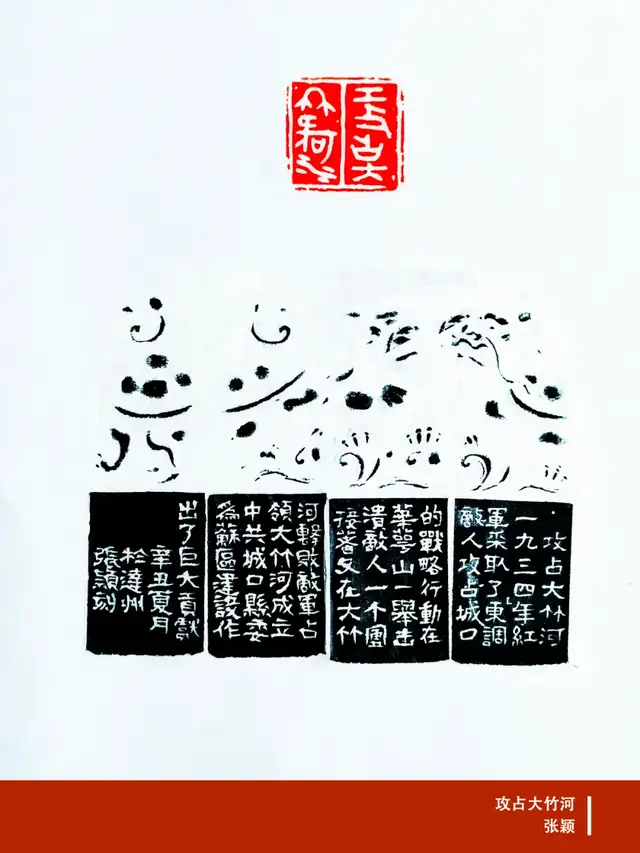 攻占大
竹河
·攻占大竹河
一九三四年紅
軍采取了東調
敵人攻占城口
的戰略行動在
華萼山一舉击
潰敵人一个團
接着又在大竹
河擊敗敵軍占
領大竹河成立
中共城口縣委
為蘇區建設作
出了巨大貢獻
辛丑夏月
於達州
張穎刻
攻占大竹河
张颖